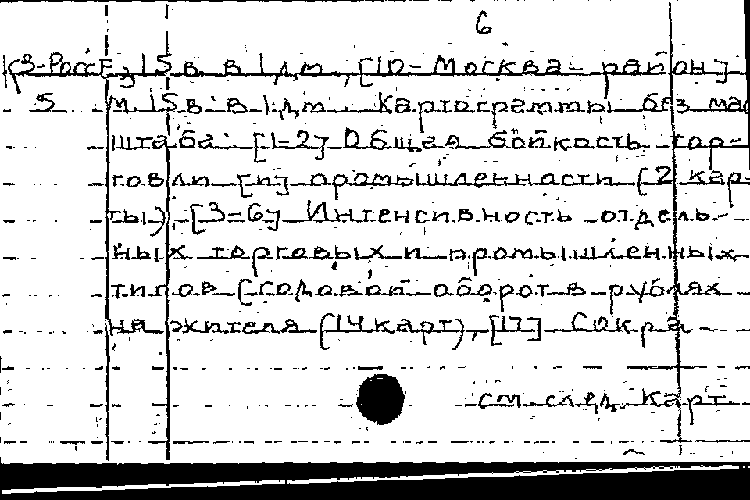 6
(3-Росс), 15 в. в 1 дм., [10-Москва-район]
5 м. 15 в. в 1 дм. Картограммы без мас
штаба: [1-2] Общая бойкость тор-
говли [и] промышленности (2 кар-
ты), [3-6] Интенсивность отдель-
ных торговых и промышленных
типов [годовой оборот в рублях
на жителя (14 карт), [17] Сокра-
см. след. карт.